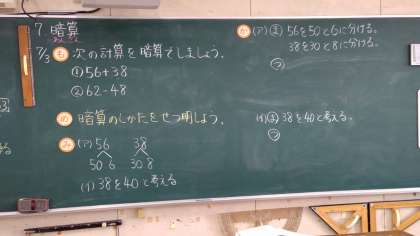 7. 暗算
7/3 も 次の計算を暗算でしましょう。
①56+38
②62-48
め 暗算のしかたをせつ明しよう。
み (ア) 56 38
50 6 30 8
(イ) 38を40と考える
か (ア) ま 56を50と6に分ける。
38を30と8に分ける。
つ
(イ) ま 38を40と考える。
つ